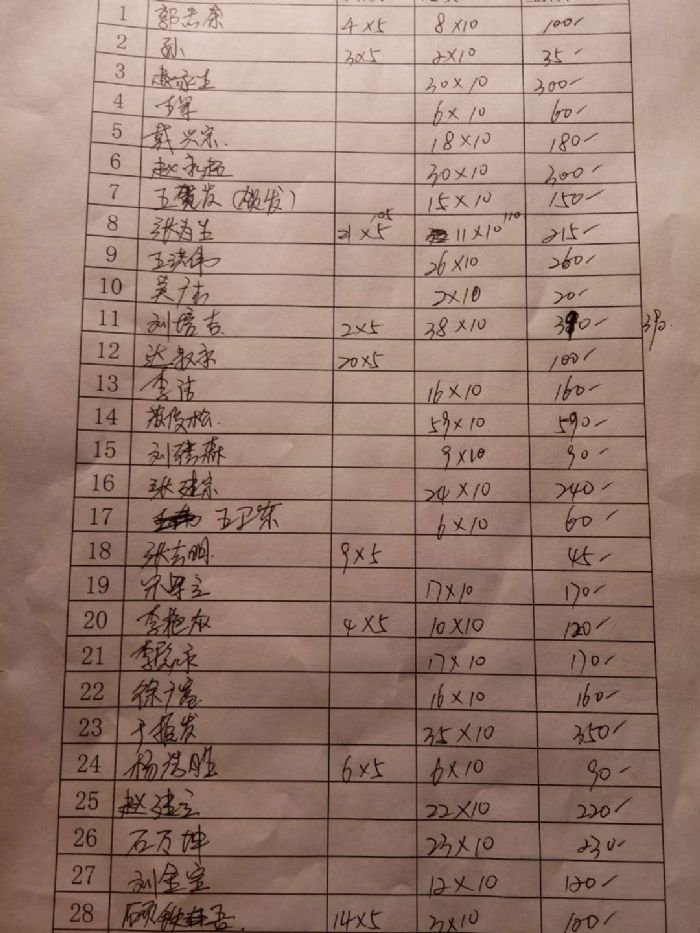 1 郭志奈 4×5 8×10 100-
2 孙 3×5 2×10 35-
3 赵永生 30×10 300-
4 王军 6×10 60-
5 戴兴宗. 18×10 180-
6 赵永超 30×10 300-
7 王贺发(贺发) 15×10 150-
8 张为生 21×5 105 11×10 110 215-
9 王洪伟 26×10 260-
10 吴广志 2×10 20-
11 刘培吉 2×5 38×10 390- 390.
12 达叔京 20×5 100-
13 李洁 16×10 160-
14 俊松. 59×10 590-
15 刘森 9×10 90-
16 张建宗 24×10 240-
17 王卫东 6×10 60-
18 张志明. 9×5 45-
19 宋立 17×10 170-
20 李艳 4×5 10×10 120-
21 李 17×10 170-
22 徐广富 16×10 160-
23 于振发 35×10 350-
24 杨胜 6×5 6×10 90-
25 赵建立 22×10 220-
26 石万坤 23×10 230-
27 刘金宝 12×10 120-
28 14×5 3×10 100-